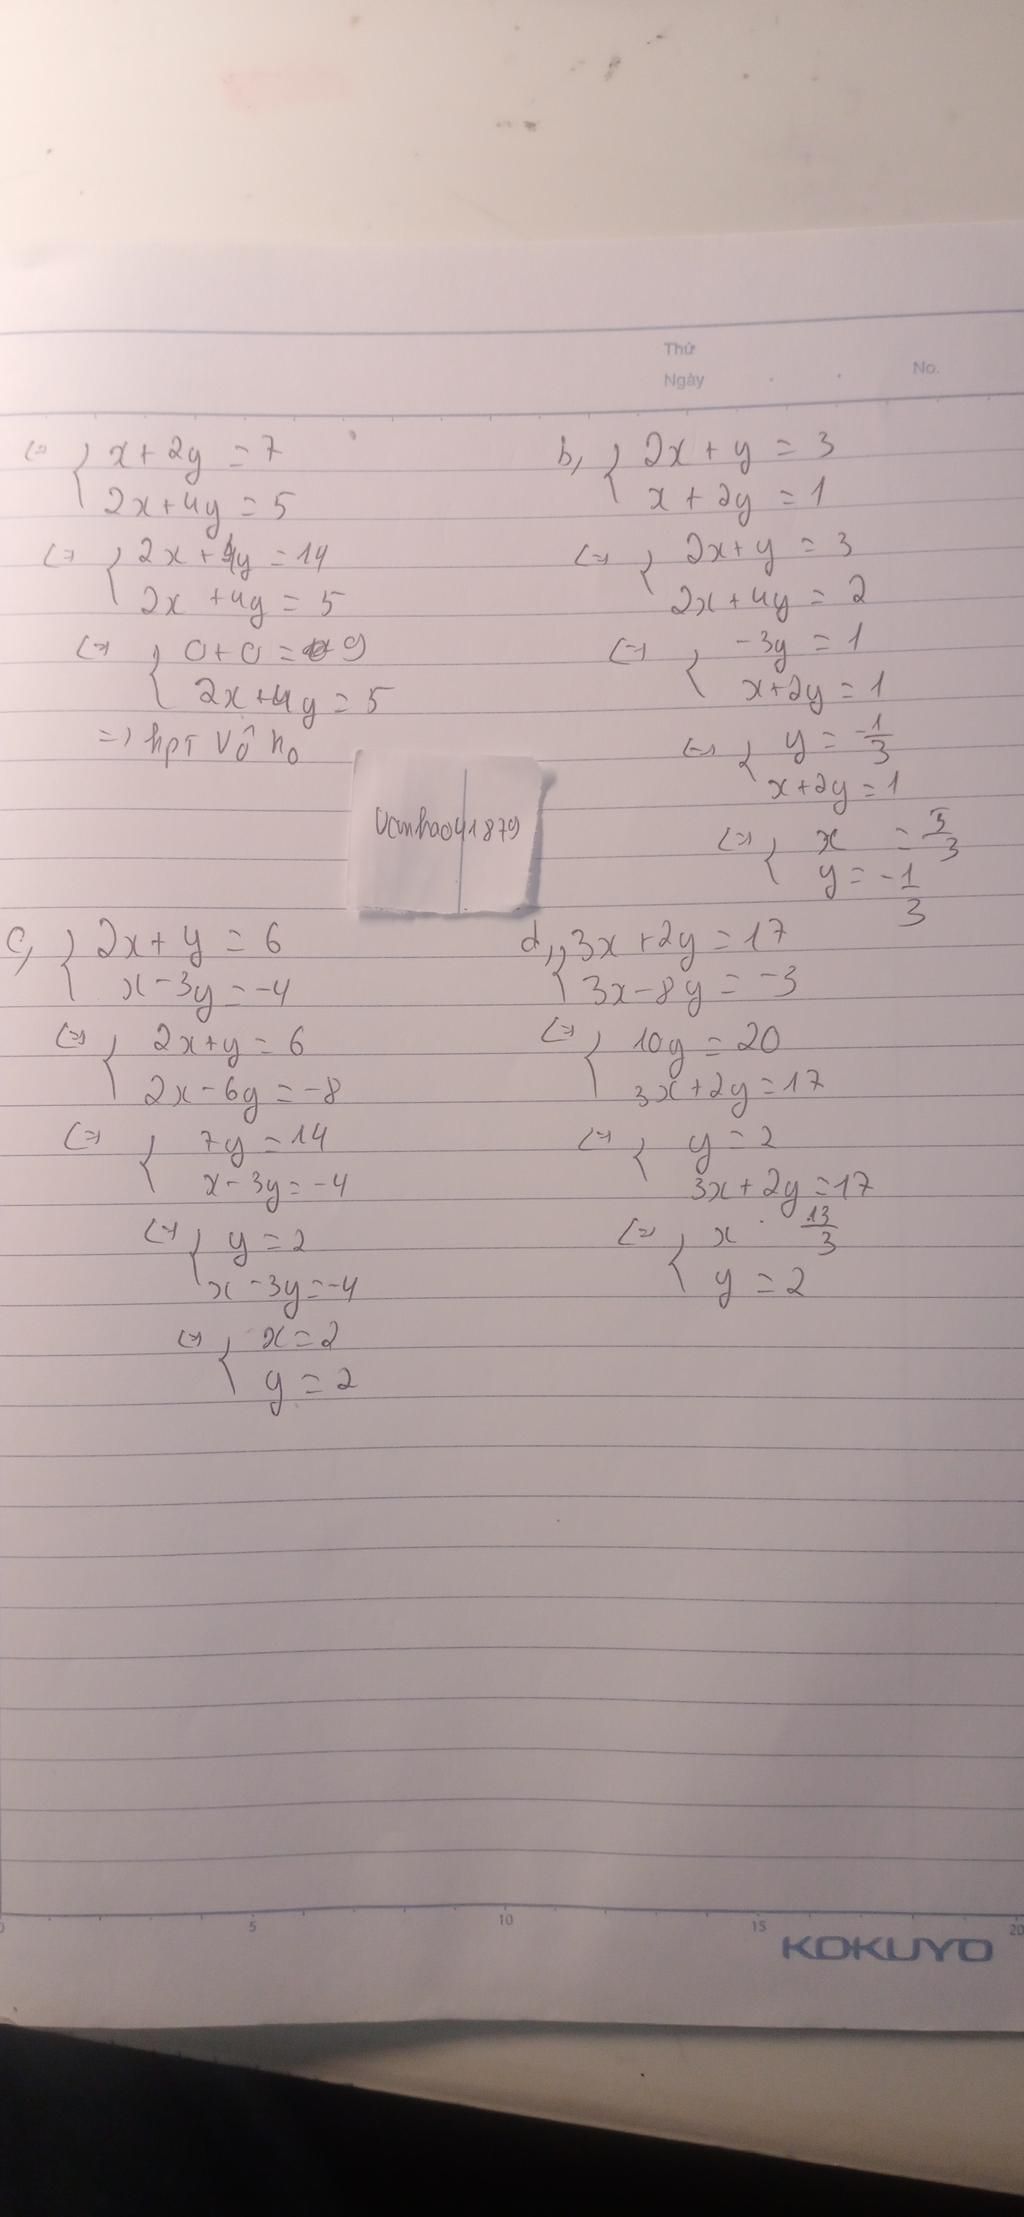 Thứ
Ngày . . No.
(=) { x + 2y = 7
2x + 4y = 5
(=) { 2x + 4y = 14
2x + 4y = 5
(=) { 0 + 0 = 9
2x + 4y = 5
=) hpT Vô no
b, { 2x + y = 3
x + 2y = 1
(=) { 2x + y = 3
2x + 4y = 2
(=) { -3y = 1
x + 2y = 1
(=) { y = -1/3
x + 2y = 1
(=) { x = 5/3
y = -1/3
Vanhao41879
c, { 2x + y = 6
x - 3y = -4
(=) { 2x + y = 6
2x - 6y = -8
(=) { 7y = 14
x - 3y = -4
(=) { y = 2
x - 3y = -4
(=) { x = 2
y = 2
d, { 3x + 2y = 17
3x - 8y = -3
(=) { 10y = 20
3x + 2y = 17
(=) { y = 2
3x + 2y = 17
(=) { x 13/3
y = 2
0 5 10 15 20
KOKUYO